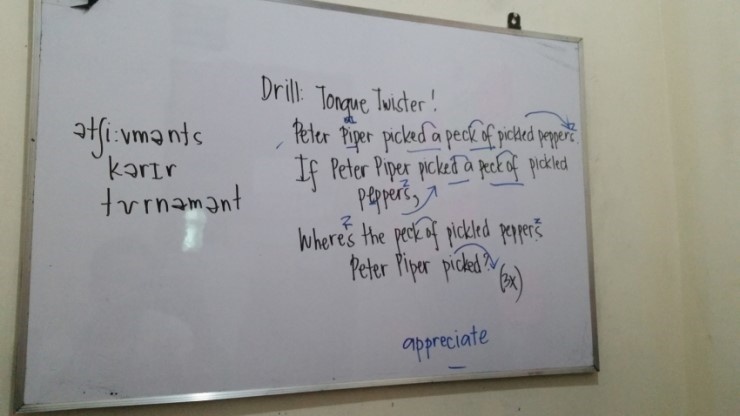 ətʃi:vmənts
kərɪr
tʊrnəmənt
Drill: Tongue Twister!
Peter Piper picked a peck of pickled peppers.
If Peter Piper picked a peck of pickled
peppers,
Where's the peck of pickled peppers
Peter Piper picked? (3x)
appreciate